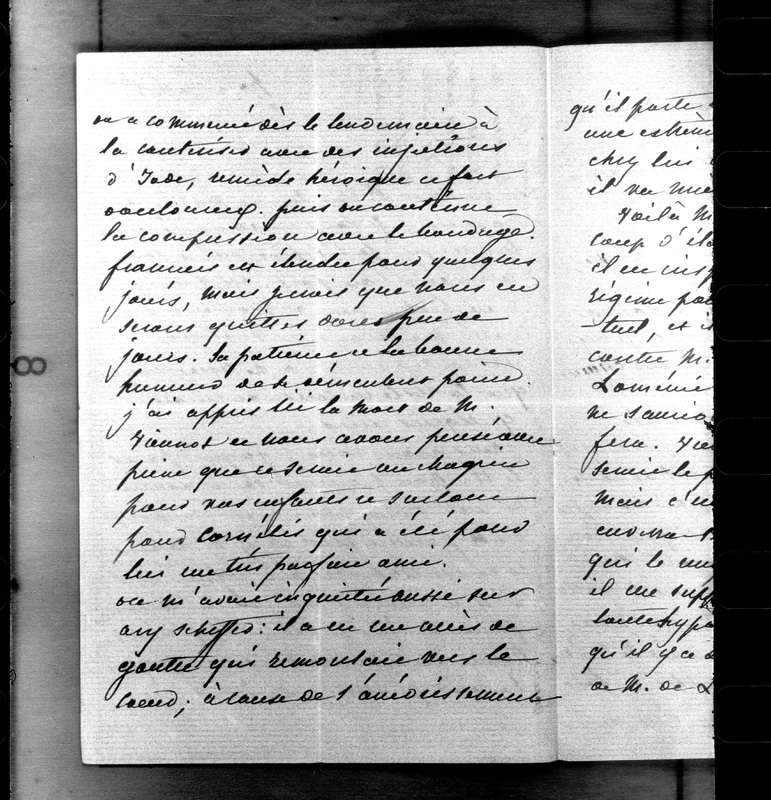 on a commencé dès le lendemain à
la cautériser avec des injections
d'Iode, remède héroique et fort
douloureux. puis on continue
la compression avec le bandage.
francis est étendu pour quelques
jours, mais je vois que nous en
serons quittes dans peu de
jours. Sa patience et sa bonne
humeur ne se démentent point.
j'ai appris ici la mort de M.
Viennot et nous avons pensé avec
peine que ce serait un chagrin
pour vos enfants et surtout
pour Cornélis qui a été pour
lui un très parfait ami.
on m'avait inquiétée aussi sur
ary scheffer: il a eu un accès de
goutte qui remontait vers le
coeur; à cause de l'anévrissement
qu'il parte
une
chez lui
il va
Voilà M
coup d'
il en
régime
-tuel, et
contre M.
Loménie
ne
fera.
serait le
mais c'

qui le
il me
toute
qu'il y a
de M. de L
8